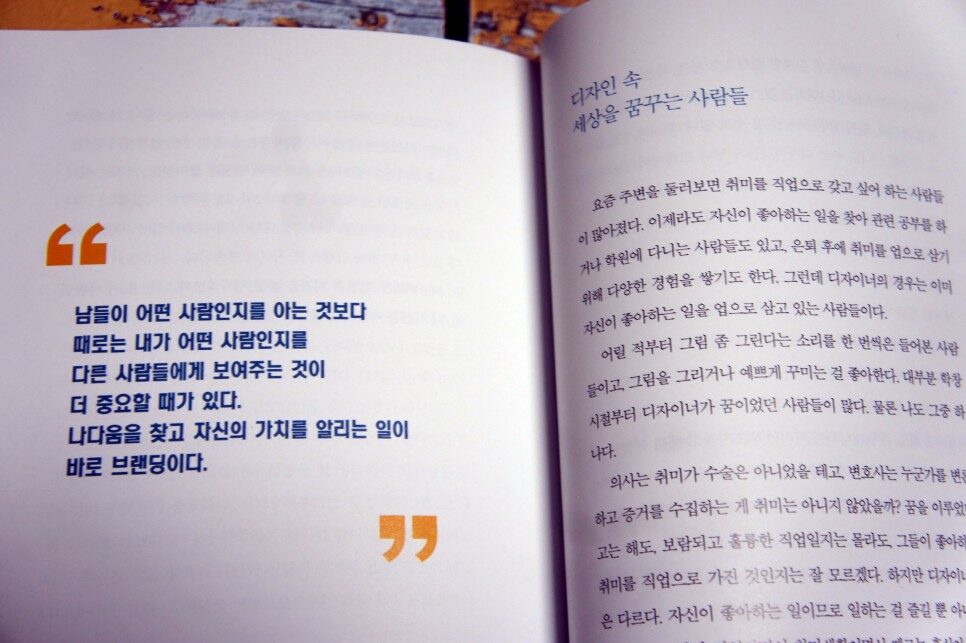 “
남들이 어떤 사람인지를 아는 것보다
때로는 내가 어떤 사람인지를
다른 사람들에게 보여주는 것이
더 중요할 때가 있다.
나다움을 찾고 자신의 가치를 알리는 일이
바로 브랜딩이다.
”
디자인 속
세상을 꿈꾸는 사람들
요즘 주변을 둘러보면 취미를 직업으로 갖고 싶어 하는 사람들
이 많아졌다. 이제라도 자신이 좋아하는 일을 찾아 관련 공부를 하
거나 학원에 다니는 사람들도 있고, 은퇴 후에 취미를 업으로 삼기
위해 다양한 경험을 쌓기도 한다. 그런데 디자이너의 경우는 이미
자신이 좋아하는 일을 업으로 삼고 있는 사람들이다.
어릴 적부터 그림 좀 그린다는 소리를 한 번씩은 들어본 사람
들이고, 그림을 그리거나 예쁘게 꾸미는 걸 좋아한다. 대부분 학창
시절부터 디자이너가 꿈이었던 사람들이 많다. 물론 나도 그중 하
나다.
의사는 취미가 수술은 아니었을 테고, 변호사는 누군가를 변론
하고 증거를 수집하는 게 취미는 아니지 않았을까? 꿈을 이루었
고는 해도, 보람되고 훌륭한 직업일지는 몰라도, 그들이 좋아하
취미를 직업으로 가진 것인지는 잘 모르겠다. 하지만 디자이너
은 다르다. 자신이 좋아하는 일이므로 일하는 걸 즐길 뿐 아니